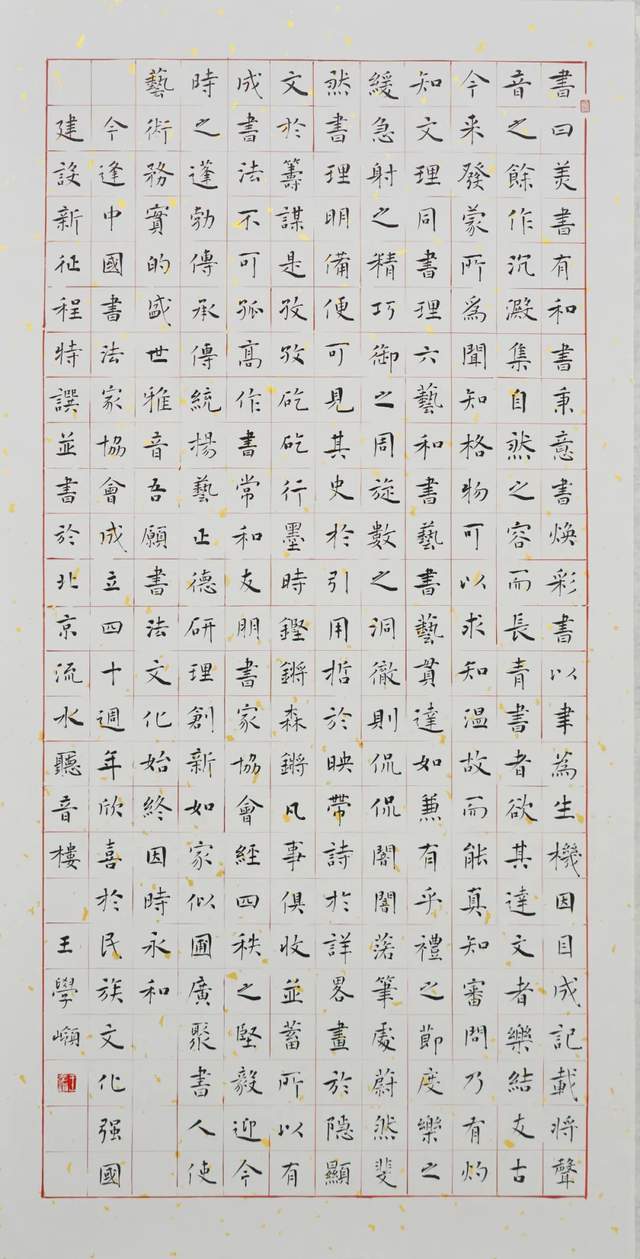 書曰美書有和書秉意書煥彩書以聿為生機因目成記載將聲
音之餘作沉澱集自然之容而長青書者欲其達文者樂結友古
今来發蒙所為聞知格物可以求知溫故而能真知審問乃有灼
知文理同書理六藝和書藝書藝貫達如兼有乎禮之節度樂之
緩急射之精巧御之周旋數之洞徹則侃侃闇闇落筆處蔚然斐
然書理明備便可見其史於引用哲於映帶詩於詳畧畫於隱顯
文於籌謀是孜孜矻矻行墨時鏗鏘森鏘凡事俱收並蓄所以有
成書法不可孤高作書常和友朋書家協會經四秩之堅毅迎今
時之蓬勃傳承傳統揚藝正德研理創新如家似圃廣聚書人使
藝術務實的盛世雅音吾願書法文化始終因時永和
今逢中國書法家協會成立四十週年欣喜於民族文化强國
建設新征程特譔並書於北京流水聽音樓 王學嶺